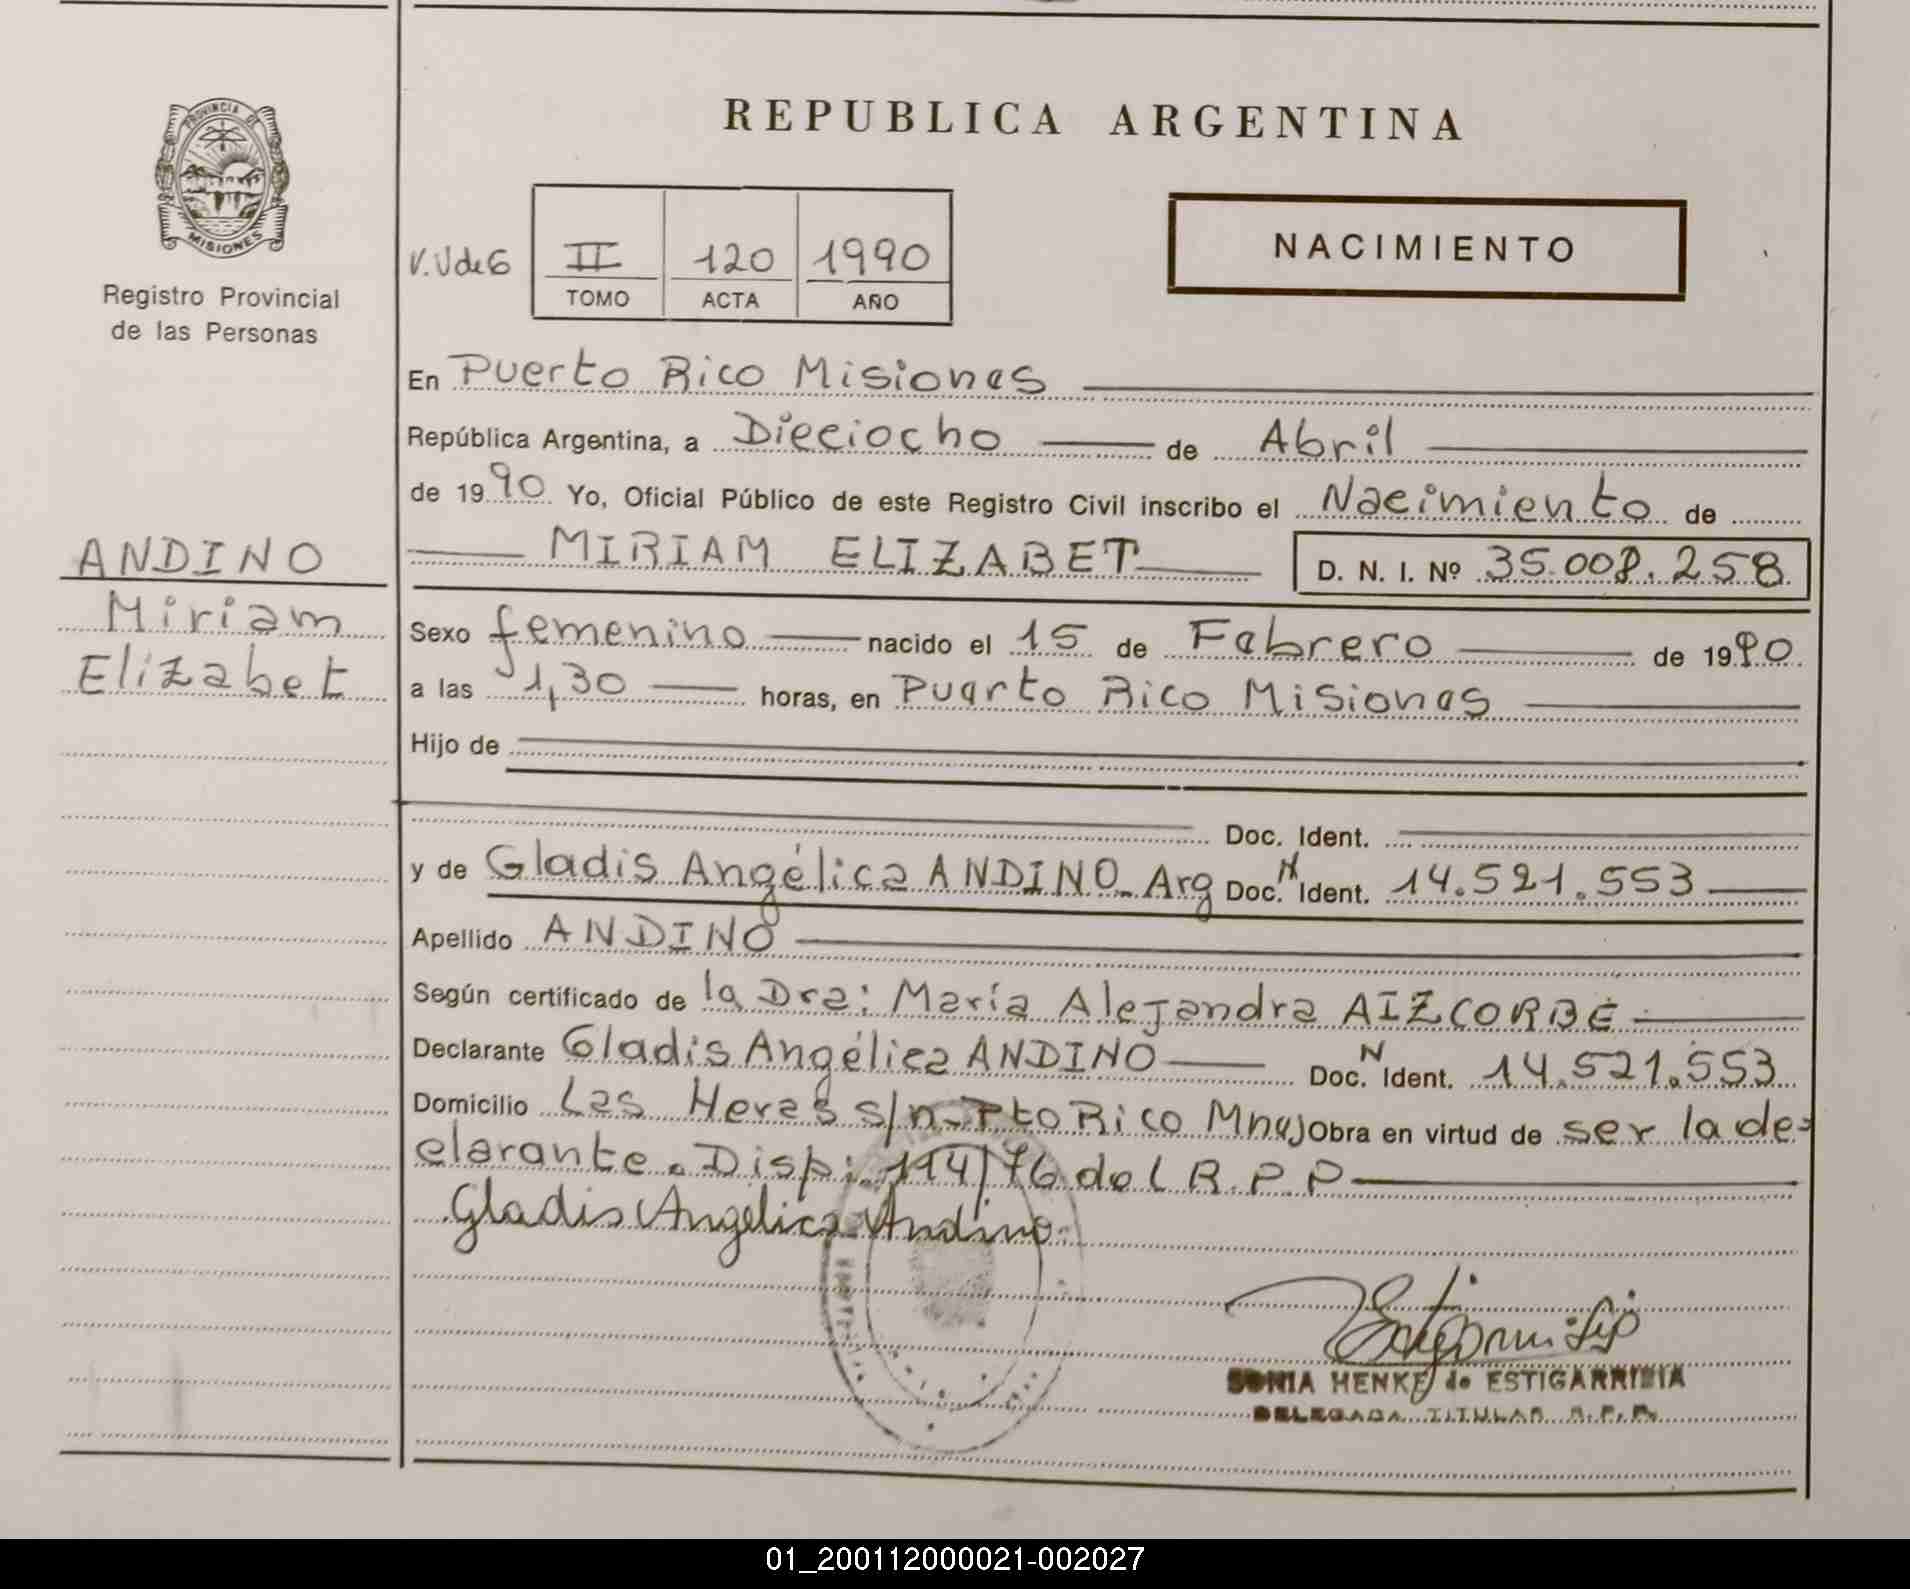 REPUBLICA ARGENTINA
PROVINCIA DE
MISIONES
Registro Provincial
de las Personas
NACIMIENTO
II 120 1990
TOMO ACTA AÑO
En Puerto Rico Misiones
República Argentina, a Dieciocho de Abril
de 1990 Yo, Oficial Público de este Registro Civil inscribo el Nacimiento de
MIRIAM ELIZABET D. N. I. Nº 35.008.258
ANDINO
Miriam
Elizabet
Sexo femenino nacido el 15 de Febrero de 1990
a las 1,30 horas, en Puerto Rico Misiones
Hijo de
Doc. Ident.
y de Gladis Angélica ANDINO_ Arg Doc. N Ident. 14.521.553
Apellido ANDINO
Según certificado de la Dra: María Alejandra AIZCORBE
Declarante Gladis Angélica ANDINO Doc. N Ident. 14.521.553
Domicilio Las Heras s/n_Pto Rico Mnes Obra en virtud de ser la de=
clarante. Disp: 114/76 del R.P.P
Gladis Angélica Andino
SONIA HENKE de ESTIGARRIBIA
DELEGADA TITULAR R.P.P.
01_200112000021-002027